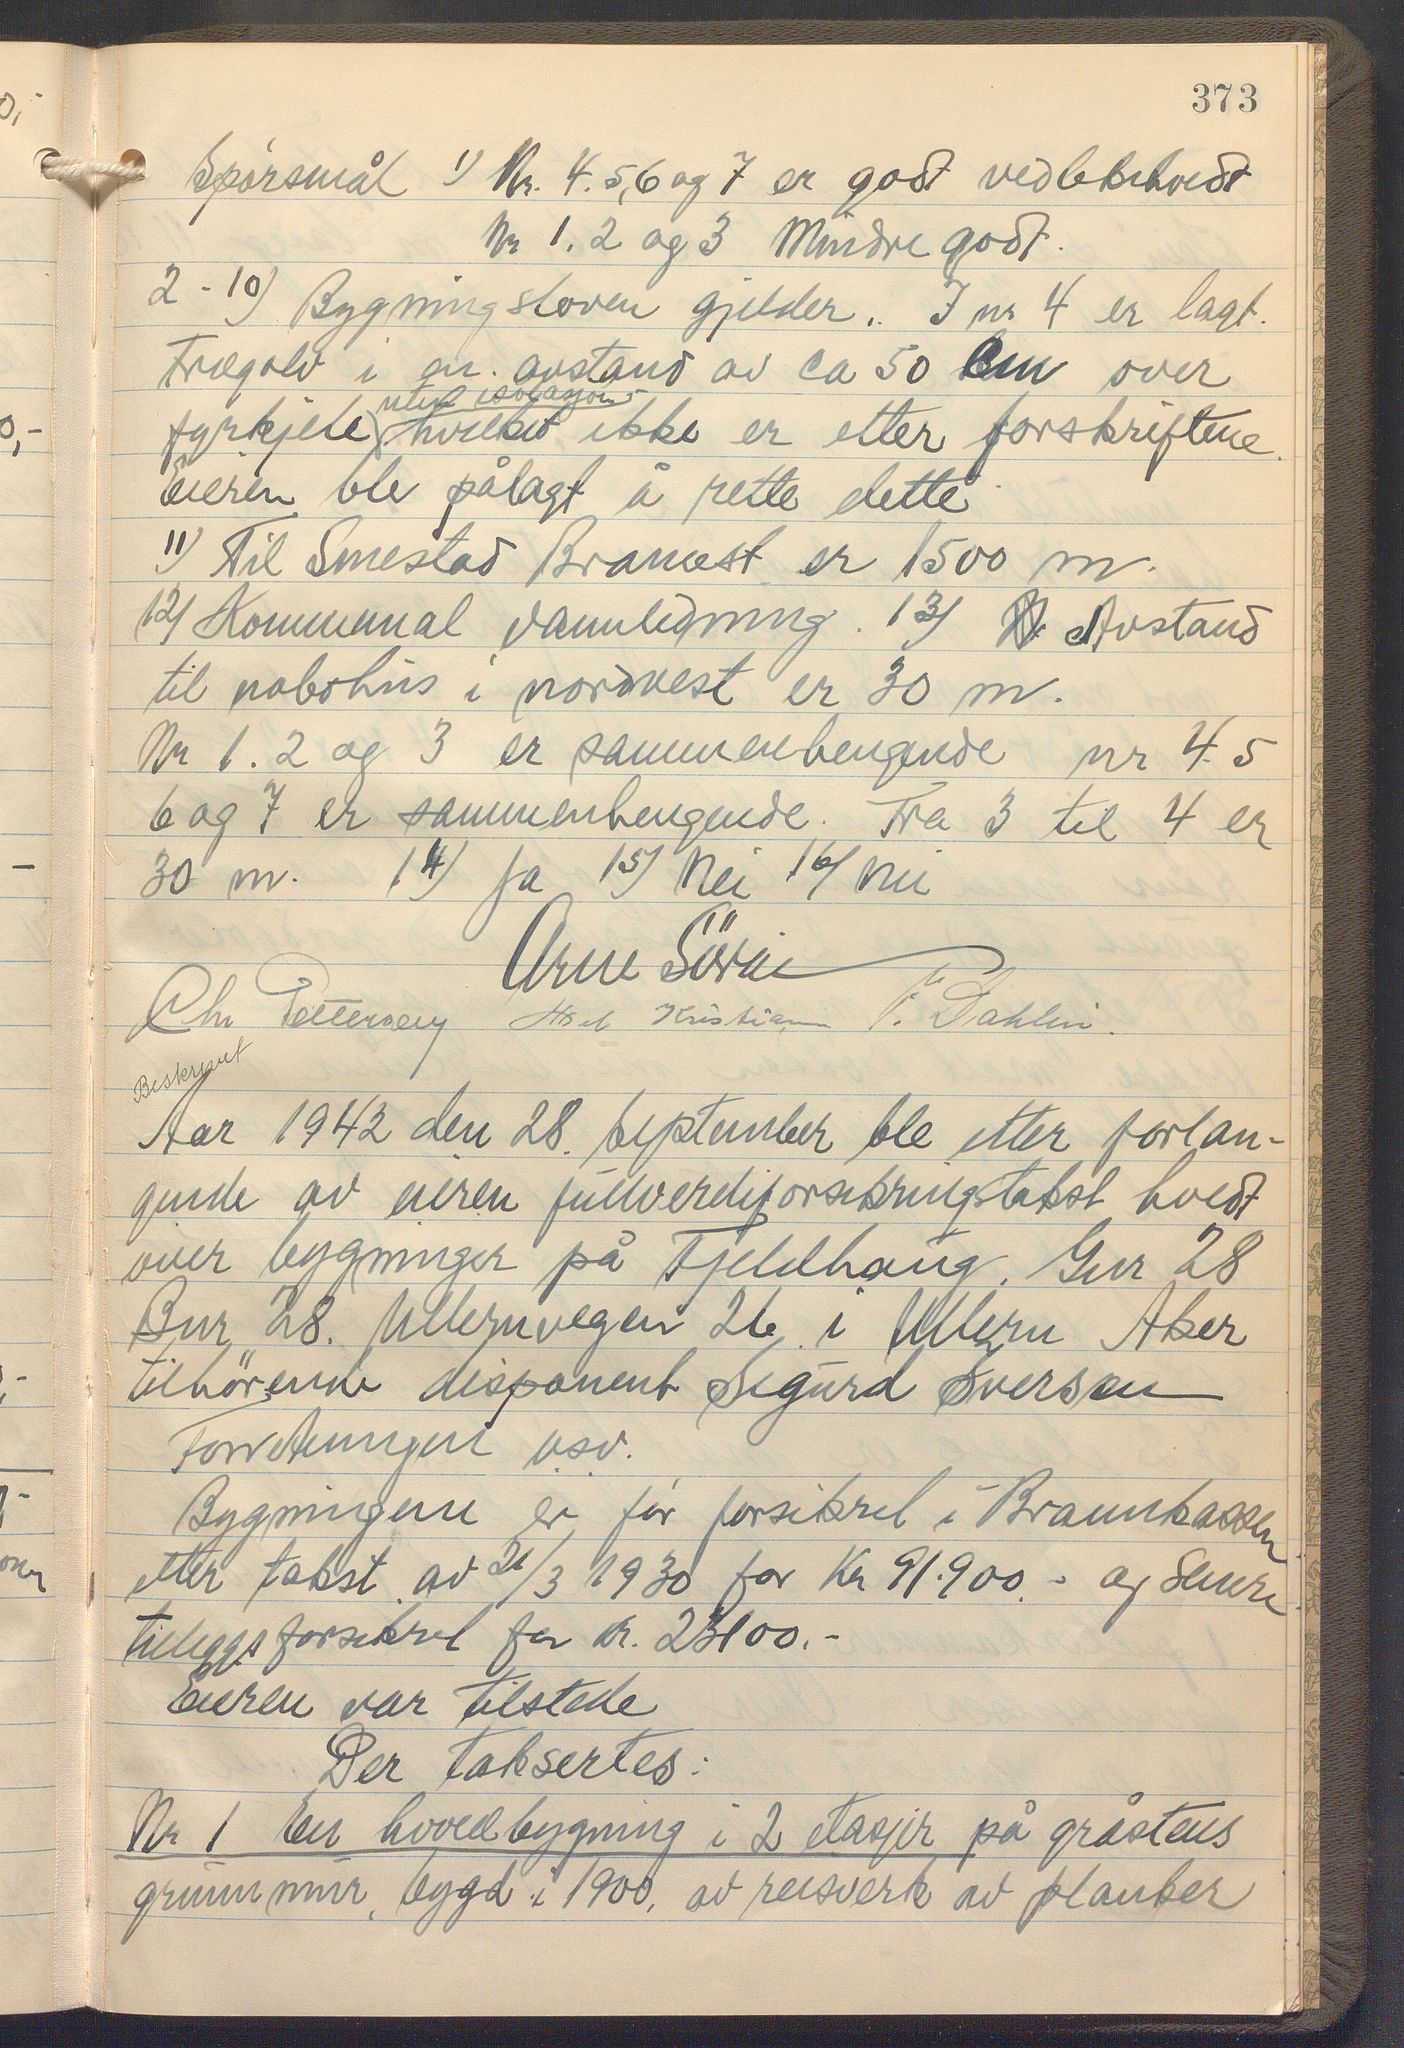 373
Spørsmål 1) Nr. 4. 5, 6 og 7 er godt vedlikeholdt
Nr 1. 2 og 3 Mindre godt.
2 - 10) Bygningsloven gjelder. I nr 4 er lagt.
Trægolv i en avstand av ca 50 cm over
uten isolasjon
fyrkjele, hvilket ikke er etter forskriftene.
Eieren ble pålagt å rette dette
11) Til Smestad Brannst er 1500 m.
12) Kommunal vannledning. 13) Avstand
til nabohus i nordvest er 30 m.
Nr 1. 2 og 3 er sammenhengende nr 4. 5
6 og 7 er sammenhengende. Fra 3 til 4 er
30 m. 14) Ja 15) Nei 16) Nei
Arne
Chr Pettersen Kristian Dahlin.
Beskrevet
Aar 1942 den 28. September ble etter forlan-
gende av eieren fullverdiforsikringstakst holdt
over bygninger på Fjeldhaug. Gnr 28
Bnr 28. Ullernvegen 26 i Ullern Aker
tilhörende disponent Sigurd Iversen
Forretningen osv.
Bygningene er før forsikret i Brannkassen
etter takst av 21/3 1930 for Kr 91.900.- og senere
tilleggsforsikret for kr. 23100.-
Eieren var tilstede
Der taksertes:
Nr 1 En hovedbygning i 2 etasjer på gråstens
grunnmur, bygd i 1900, av reisverk av planker